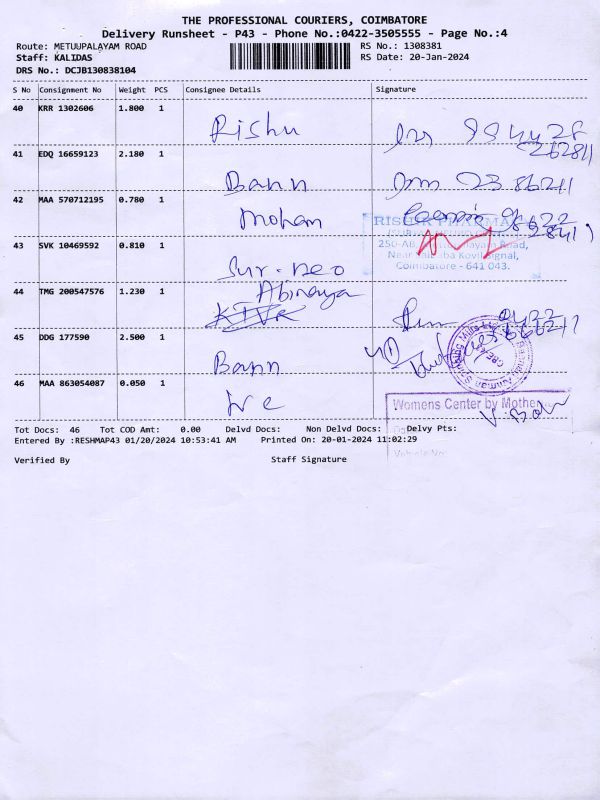 THE PROFESSIONAL COURIERS, COIMBATORE
Delivery Runsheet - P43 - Phone No.:0422-3505555 - Page No.:4
Route: METUUPALAYAM ROAD RS No.: 1308381
Staff: KALIDAS RS Date: 20-Jan-2024
DRS No.: DCJB130838104
S No Consignment No Weight PCS Consignee Details Signature
40 KRR 1302606 1.800 1 Rishu
41 EDQ 16659123 2.180 1 Bann
42 MAA 570712195 0.780 1 Mohan
RISHU PHARMA
250-AB,
43 SVK 10469592 0.810 1 Sur.neo
Coimbatore - 641 043.
44 TMG 200547576 1.230 1 Abinaya
45 DDG 177590 2.500 1 Bann
46 MAA 863054087 0.050 1 We
Womens Center by Mothe
Tot Docs: 46 Tot COD Amt: 0.00 Delvd Docs: Non Delvd Docs: Delvy Pts:
Entered By :RESHMAP43 01/20/2024 10:53:41 AM Printed On: 20-01-2024 11:02:29
Verified By Staff Signature